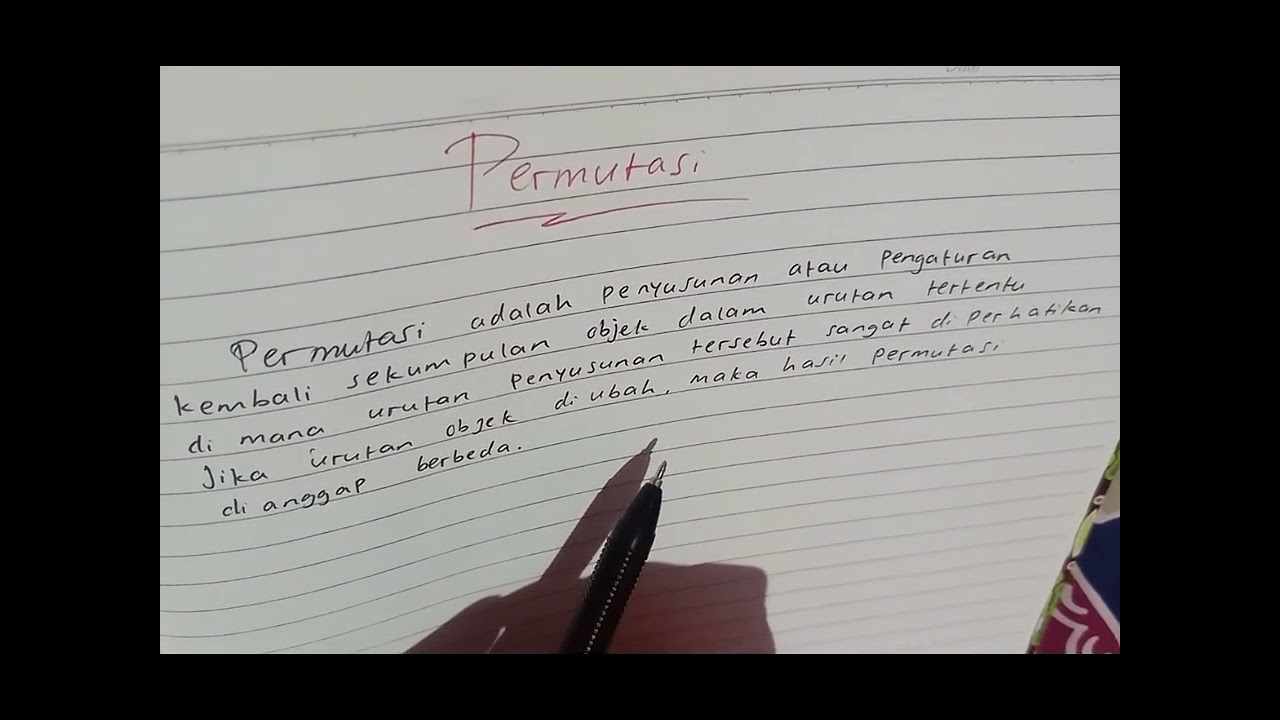 Permutasi
Permutasi adalah penyusunan atau pengaturan
kembali sekumpulan objek dalam urutan tertentu
di mana urutan penyusunan tersebut sangat di perhatikan
Jika urutan objek di ubah, maka hasil permutasi
di anggap berbeda.